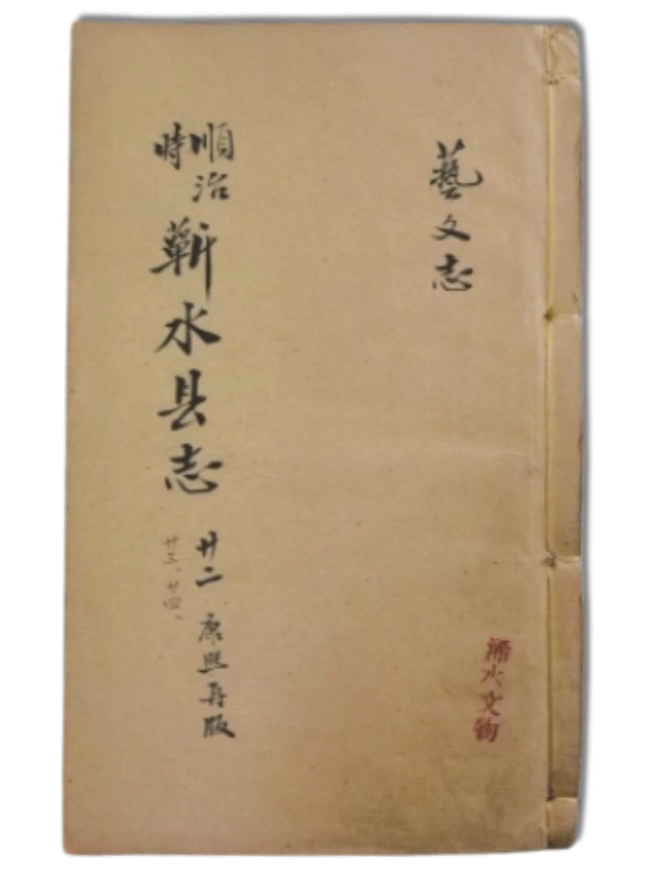 藝文志
順治時
蘄水县志
廿二 康熙再版
廿三、廿四、
浠水文物